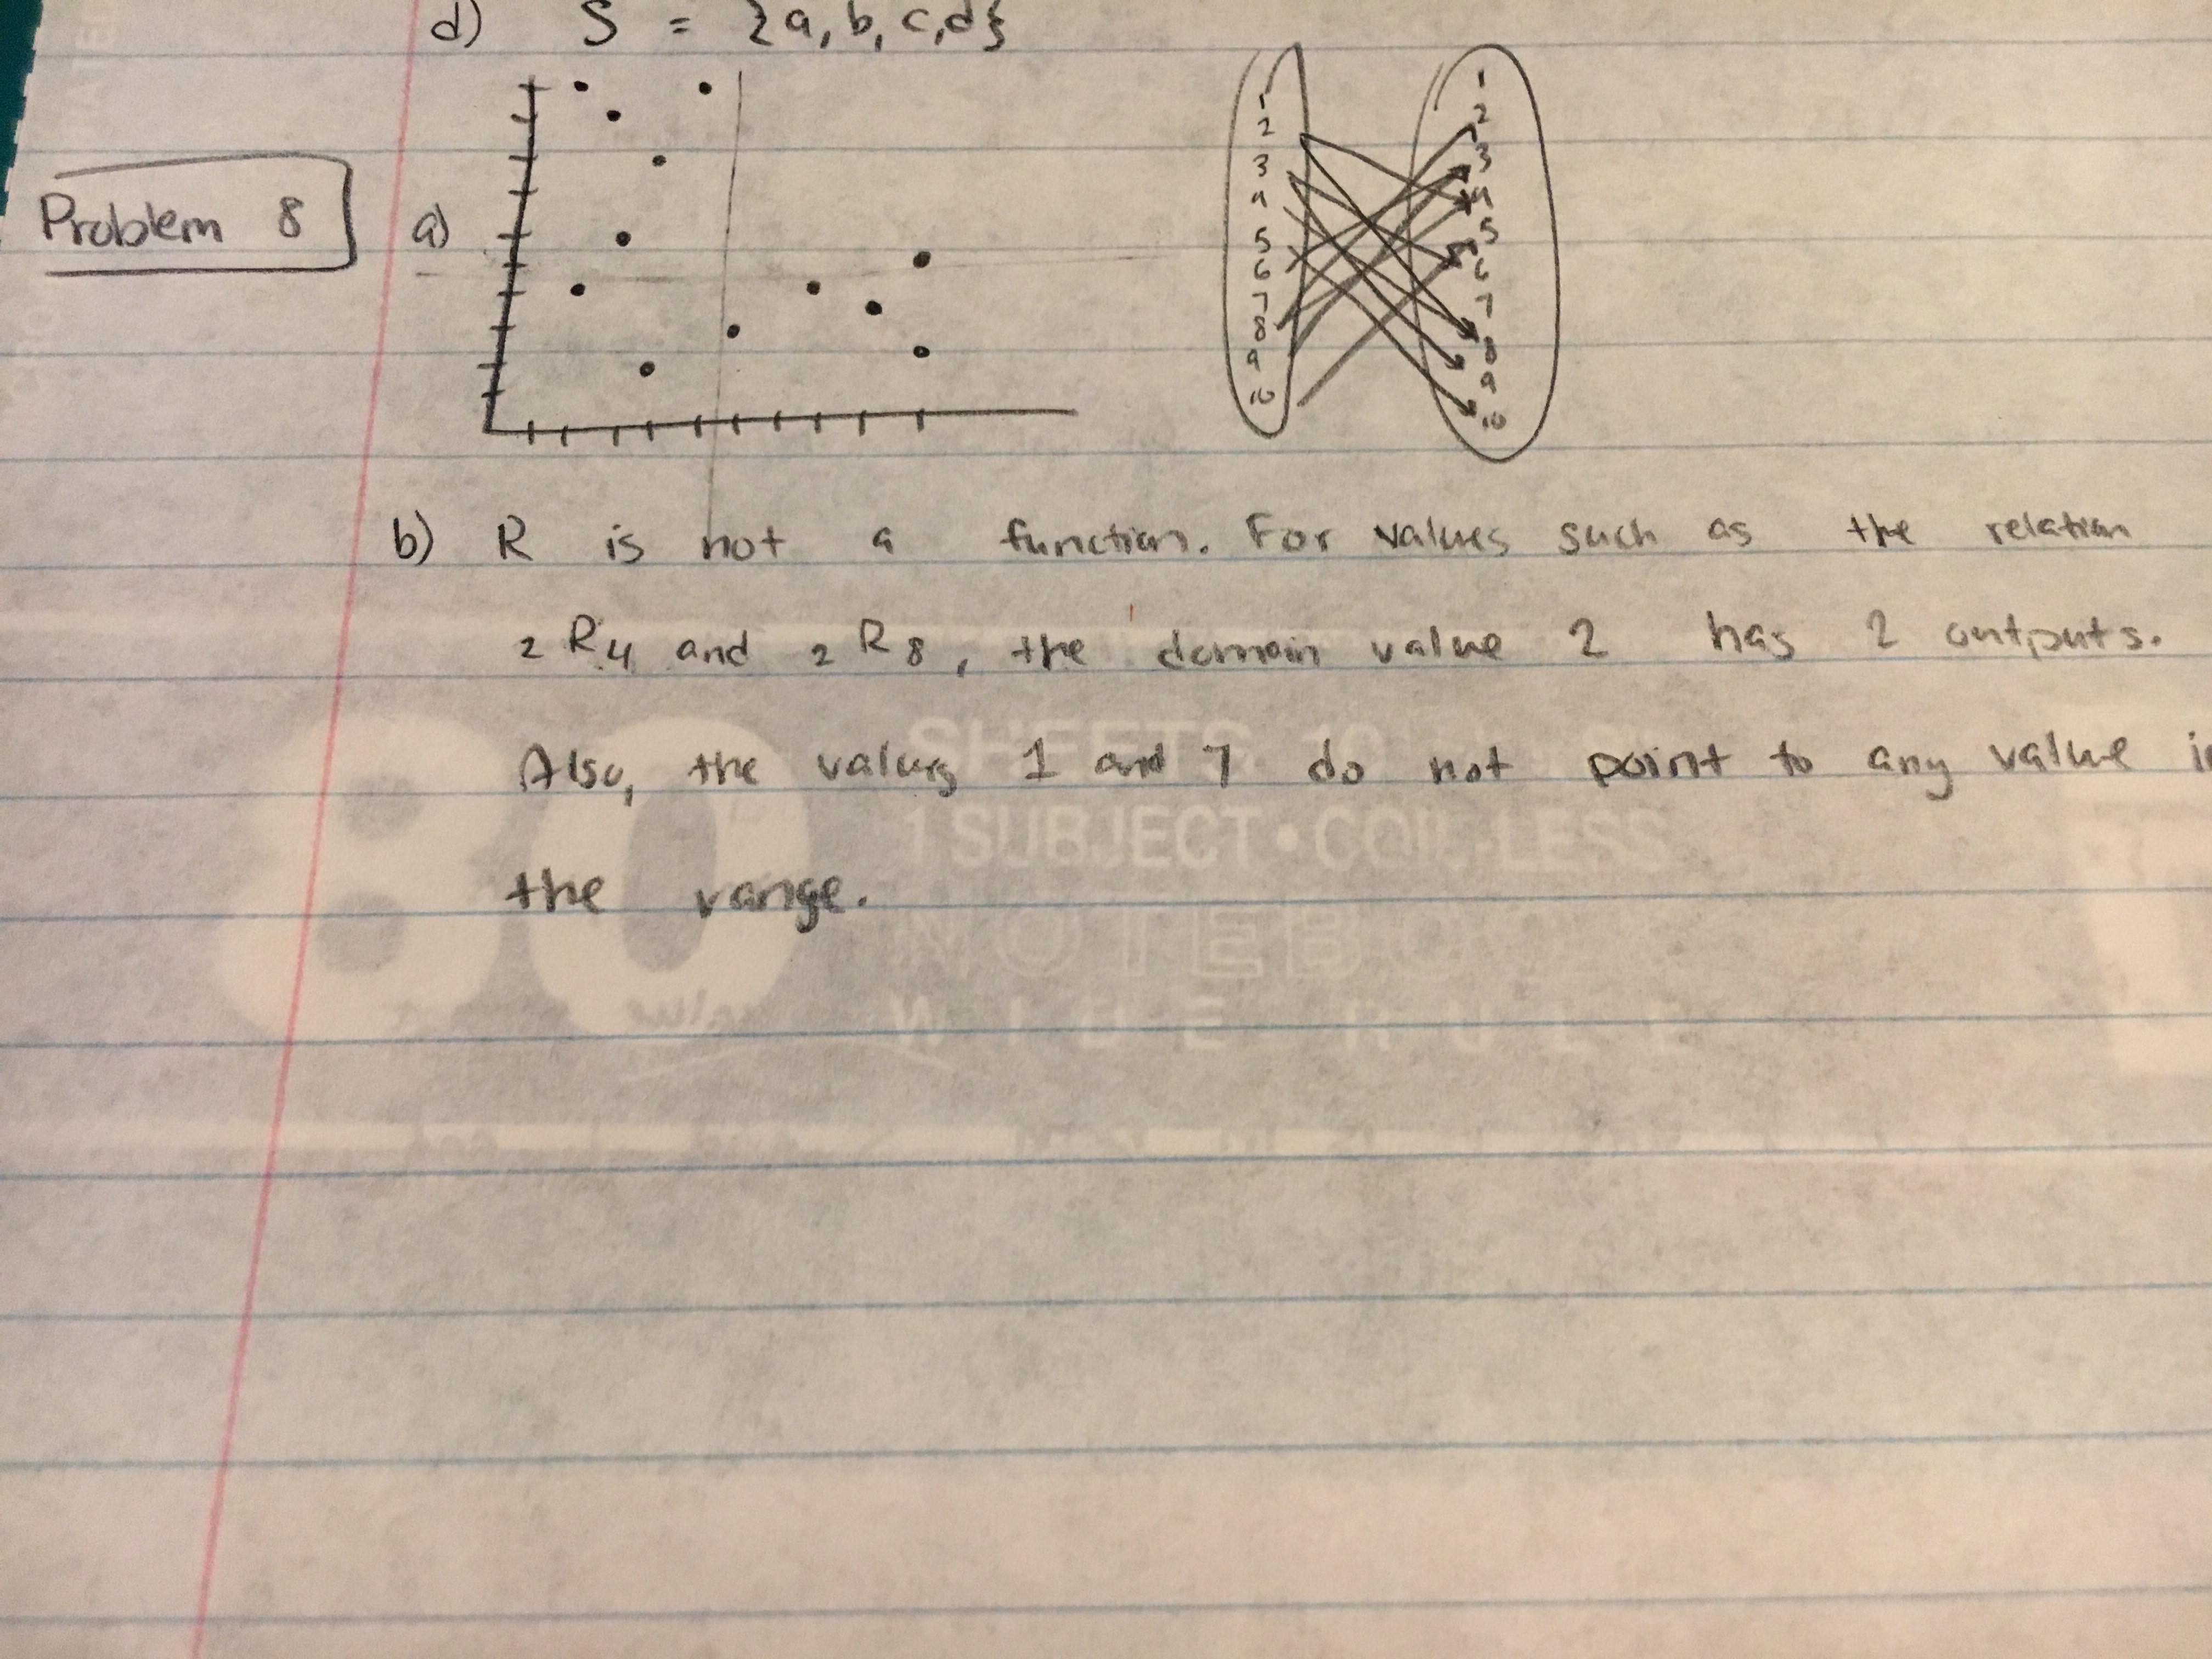 d) S = {a, b, c, d}
Problem 8
a)
1 1
2 2
3 3
4 4
5 5
6 6
7 7
8 8
9 9
10 10
b) R is not a function. For values such as the relation
2 R 4 and 2 R 8, the domain value 2 has 2 outputs.
Also, the values 1 and 7 do not point to any value
the range.
80
SHEETS
1 SUBJECT • COIL-LESS
NOTEBO
WIDE RULE